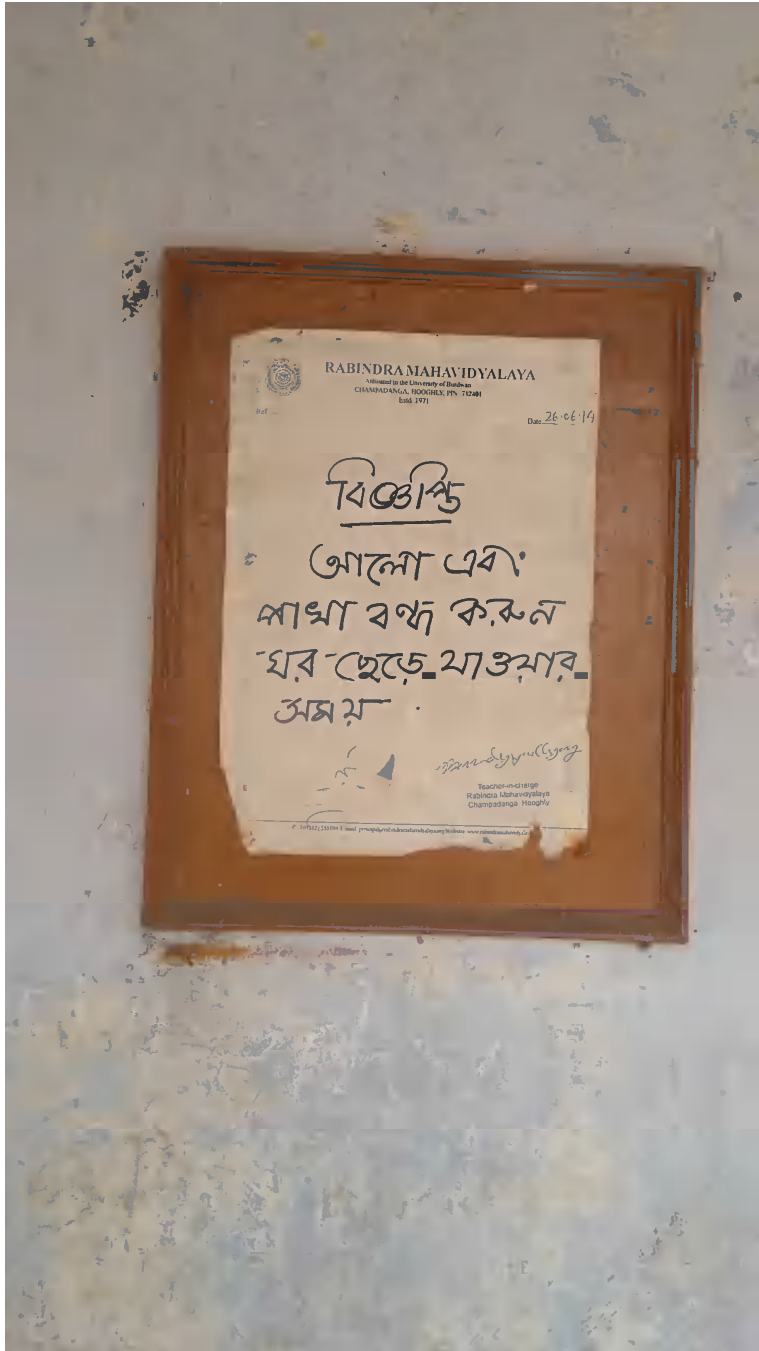 RABINDRA MAHAVIDYALAYA
Affiliated to the University of Burdwan
CHAMPADANGA, HOOGHLY, PIN 712401
Estd. 1971
Ref
Date 26.06.19
বিজ্ঞপ্তি
আলো এবং
পাখা বন্ধ করুন
ঘর ছেড়ে যাওয়ার
সময়
Teacher-in-charge
Rabindra Mahavidyalaya
Champadanga Hooghly